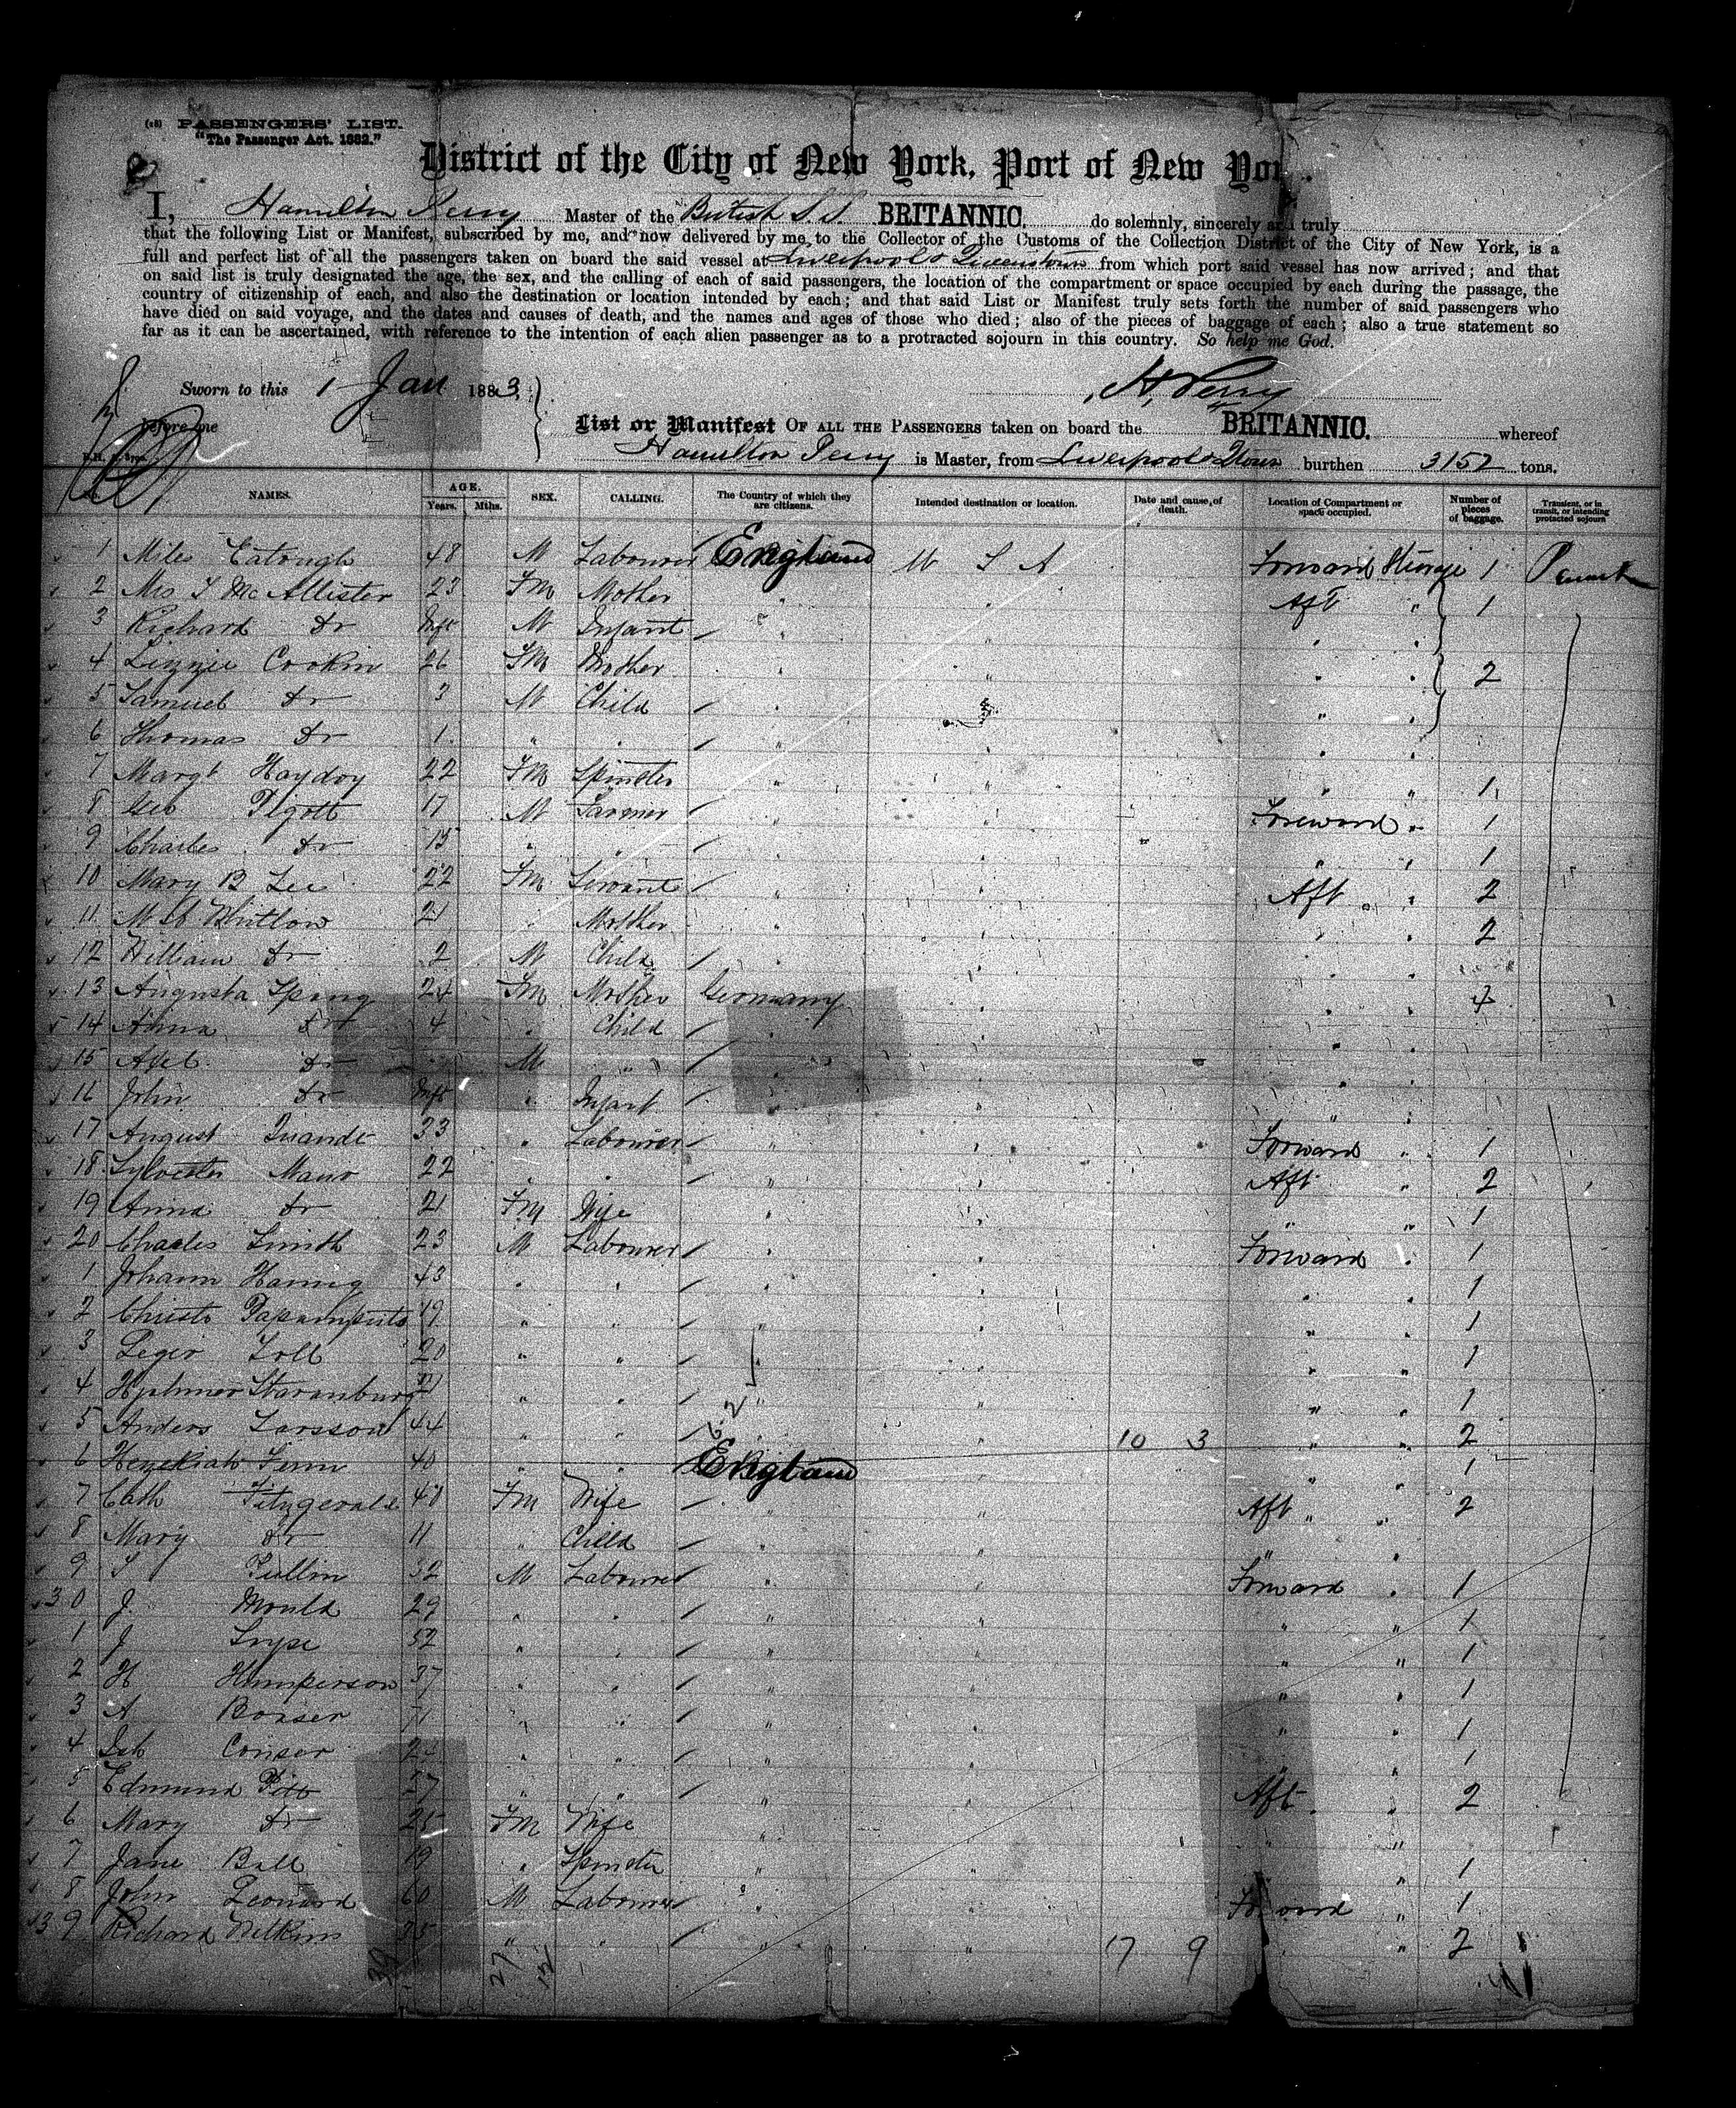 (18) PASSENGERS' LIST.
"The Passenger Act. 1882."
District of the City of New York, Port of New Yor
I, Hamilton Perry Master of the British S.S. BRITANNIC, do solemnly, sincerely and truly
that the following List or Manifest, subscribed by me, and now delivered by me to the Collector of the Customs of the Collection District of the City of New York, is a
full and perfect list of all the passengers taken on board the said vessel at Liverpool & Queenstown from which port said vessel has now arrived; and that
on said list is truly designated the age, the sex, and the calling of each of said passengers, the location of the compartment or space occupied by each during the passage, the
country of citizenship of each, and also the destination or location intended by each; and that said List or Manifest truly sets forth the number of said passengers who
have died on said voyage, and the dates and causes of death, and the names and ages of those who died; also of the pieces of baggage of each; also a true statement so
far as it can be ascertained, with reference to the intention of each alien passenger as to a protracted sojourn in this country. So help me God.
Sworn to this 1 Jan 1883, H. Perry
before me
List or Manifest OF ALL THE PASSENGERS taken on board the BRITANNIC. whereof
Hamilton Perry is Master, from Liverpool & Qtown burthen 3152 tons.
NAMES. AGE. Years. Mths. SEX. CALLING. The Country of which they are citizens. Intended destination or location. Date and cause of death. Location of Compartment or space occupied. Number of pieces of baggage. Transient, or in transit, or intending protracted sojourn
1 Miles Eatough 48 M Labourer England U S A Forward Steerage 1
2 Mrs McAllister 23 Fm Mother " " Aft " 1
3 Richard Do Inft M Infant " " " "
4 Lizzie Cookin 26 Fm Mother " " " " 2
5 Samuel Do 3 M Child " " " "
6 Thomas Do 1 " " " " "
7 Margt Haydoy 22 Fm Spinster " " " " 1
8 Geo Pigott 17 M Farmer " " Foreward " 1
9 Charles Do 15 " " " " " " 1
10 Mary B Lee 22 Fm Servant " " Aft " 2
11 M A Whitlow 21 " Mother " " " " 2
12 William Do 2 M Child " " " "
13 Augusta Spang 24 Fm Mother Germany " " " 4
14 Anna Do 4 " Child " " " "
15 Axel Do M " " " "
16 John Do Inft " Infant " " "
17 August 33 " Labourer " " Forward " 1
18 Sylvester 22 " " " " Aft " 2
19 Anna Do 21 Fm Wife " " " " 1
20 Charles Smith 23 M Labourer " " Forward " 1
1 Johann Hannig 43 " " " " " 1
2 Christo 19 " " " " " 1
3 Leger Toll 20 " " " " " 1
4 Hjalmer 21 " " " " " 1
5 Anders Larsson 44 " " " " 10 3 " " 2
6 Hezekiah Fenn 40 " " England " " 1
7 Cath Fitzgerald 40 Fm Wife " " Aft " 2
8 Mary Do 11 " Child " " "
9 Pullin 32 M Labourer " " Forward " 1
30 J. Mould 29 " " " " " " 1
1 J 52 " " " " " " 1
2 H Humperson 37 " " " " " " 1
3 A Bonser " " " " " 1
4 Conser " " " " " 1
5 Edmund Pitt 27 " " " " Aft " 2
6 Mary Do 25 Fm Wife " " " "
7 Jane Ball 19 " Spinster " " " 1
8 John Leonard 60 M Labourer " " Forward " 1
39 Richard Wilkins 35 " " " " 17 9 " 2
39 27 12